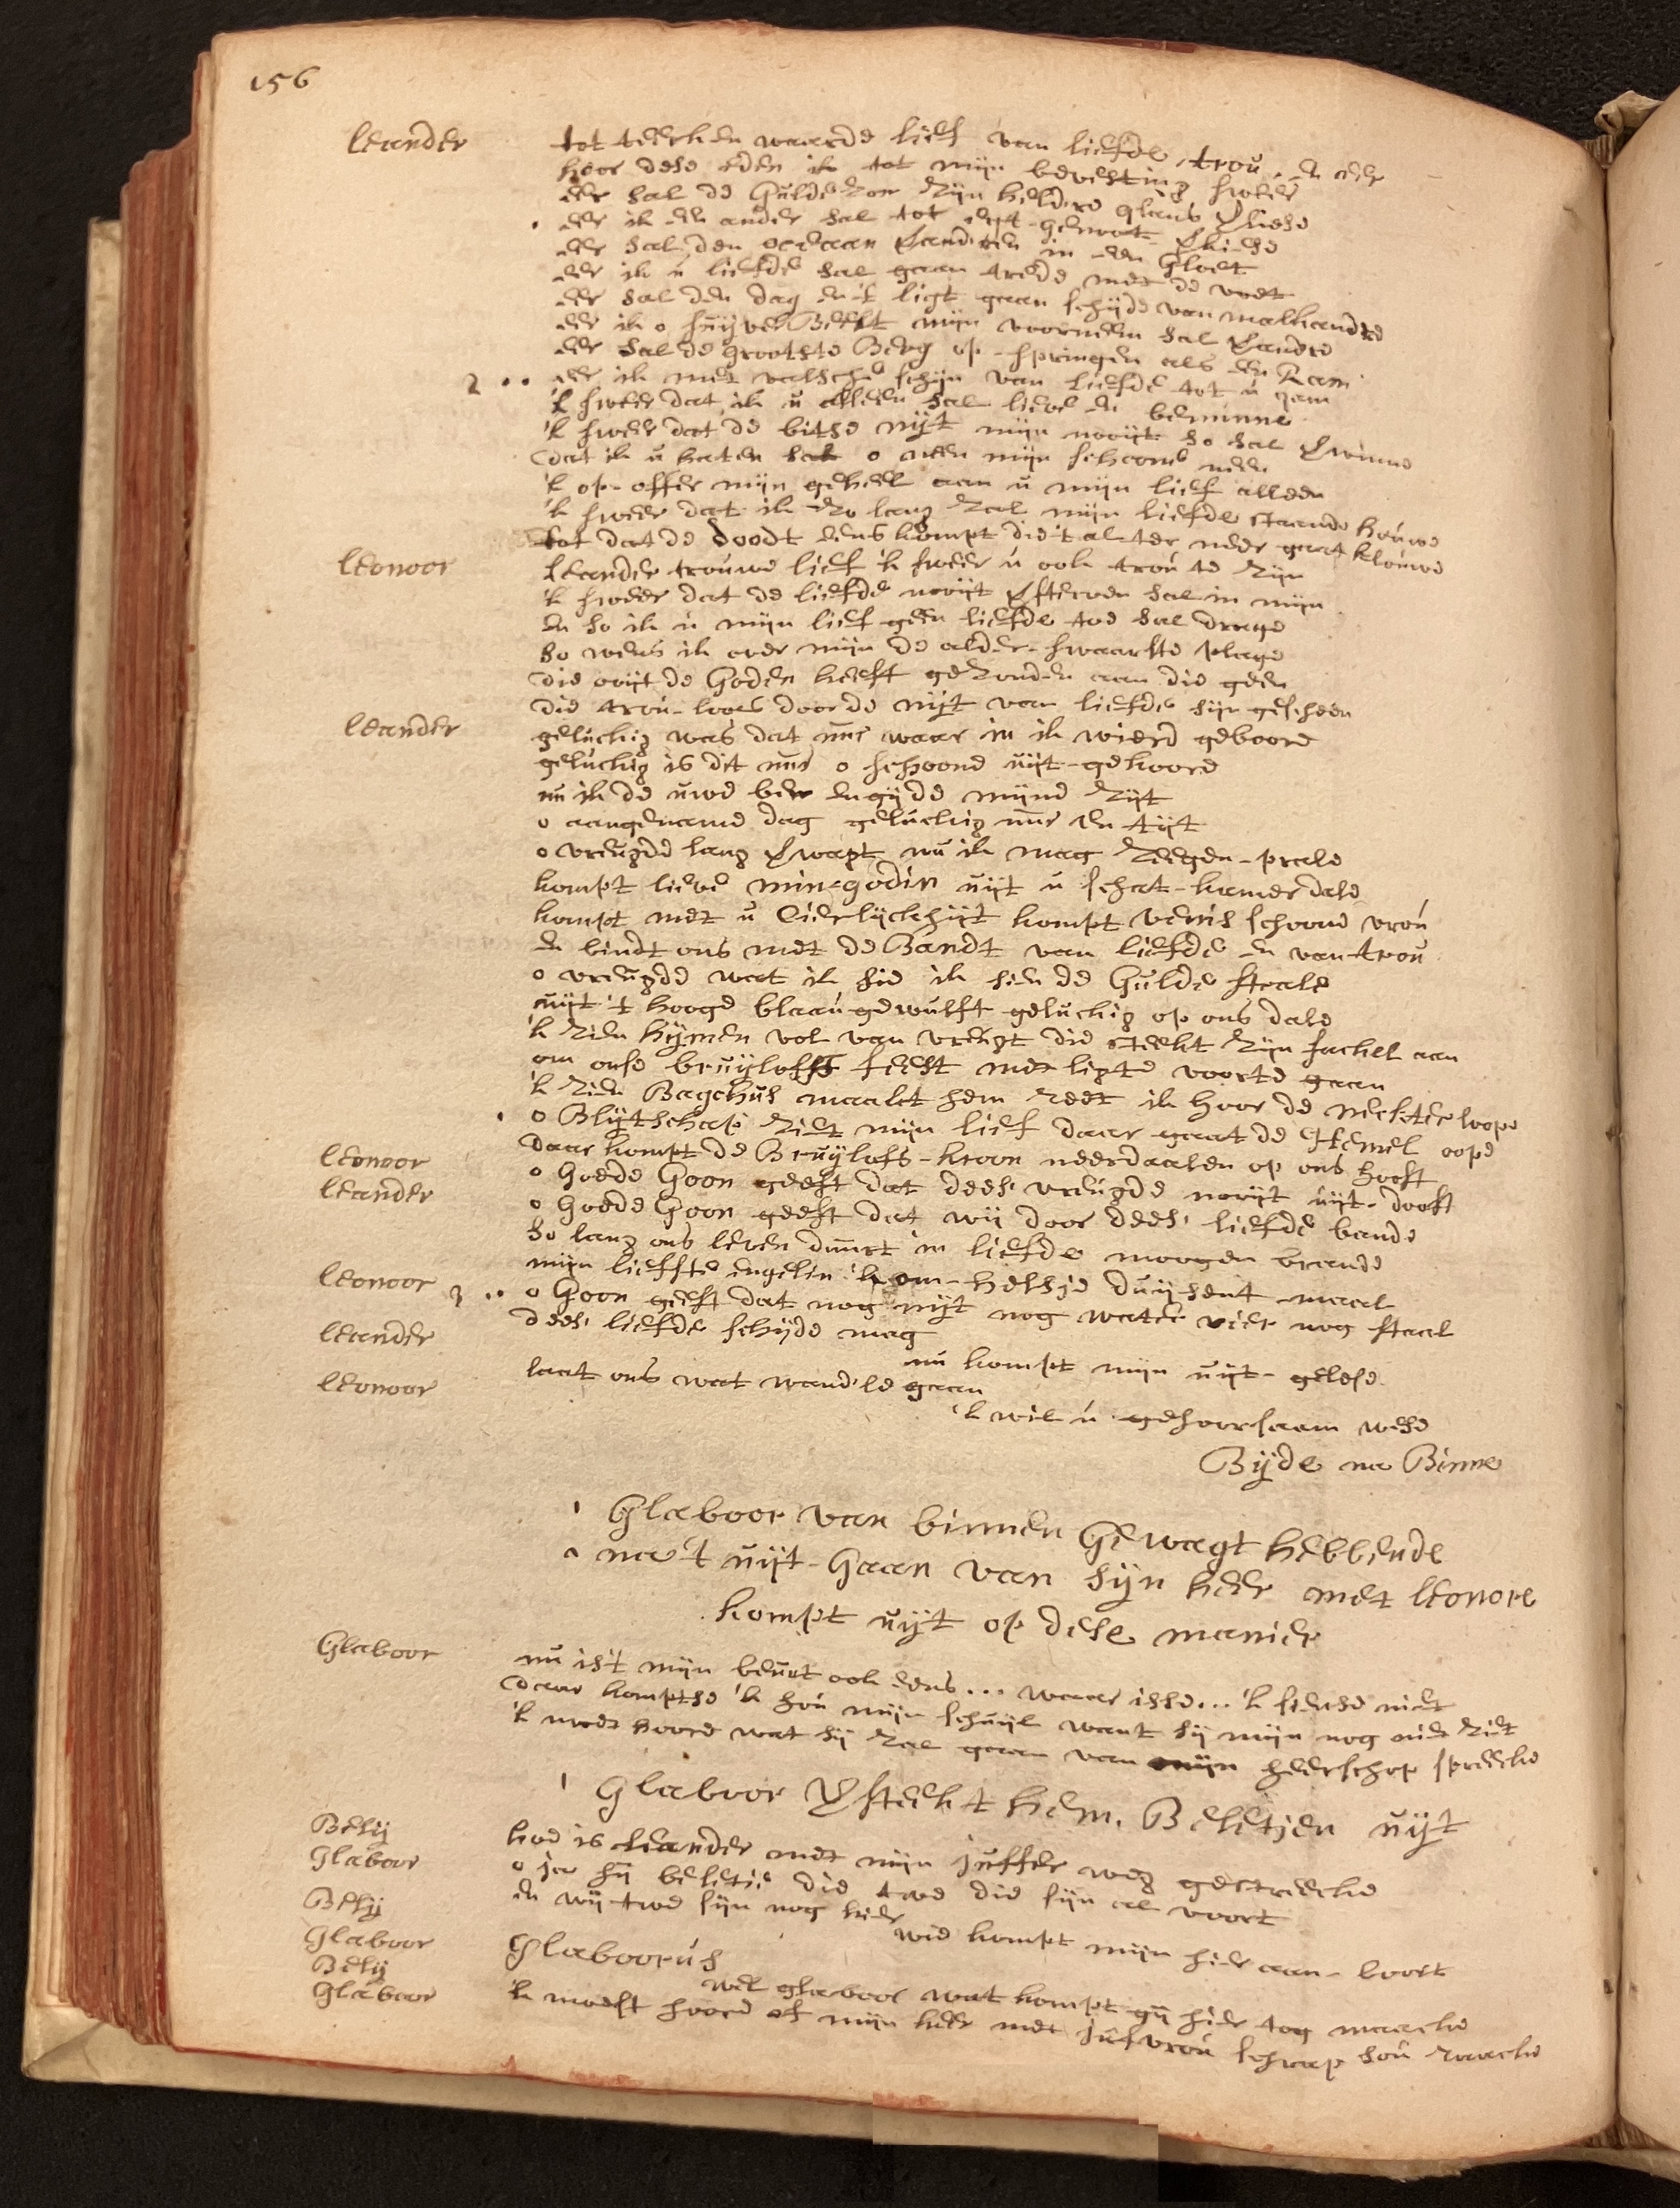 156
Leander tot teerken waarde lief van liefde, trou, en eer
hoor dese eden ik tot mijn bevesting sweer
eer sal de Gulde Zon Zijn heldere glans verliese
eer ik een ander sal tot verkiese
eer sal den oceaan veranderen in een Gloet
eer ik u liefde sal gaan trede met de voet
eer sal den dag en 't ligt gaan schijde van malkandre
eer ik o suijver Beelt mijn voorneem sal verandre
eer sal de grootste Berg op-springen als een Ram
2 .. eer ik met valsche schijn van liefde tot u quam
'k sweer dat ik u alleen sal lieve en beminne
'k sweer dat de bitse nijt mijn nooijt so sal verwinne
dat ik u haten sal o neen mijn schoone neen
'k op-offer mijn geheel aan u mijn lief alleen
'k sweer dat ik zo lang zal mijn liefde staande houwe
tot dat de doodt eens kompt die 't al ter neer gaat klouwe
Leonoor Leander trouwe lief 'k sweer u ook trou te zijn
'k sweer dat de liefde nooijt versterven sal in mijn
en so ik u mijn lief geen liefde toe sal drage
so wens ik over mijn de alder-swaarste plage
die ooijt de Goden heeft gezonden aan die geen
die trou-loos door de nijt van liefde sijn gescheen
Leander geluckig was dat uur waar in ik wierd geboore
geluckig is dit uur o schoone uijt-gekoore
nu ik de uwe ben en gij de mijne zijt
o aangename dag geluckig uur en tijt
o vreugde lang verwagt nu ik mag zeegen-prale
kompt lieve min-godin uijt u schat-kamer dale
kompt met u lieflijckhijt kompt venus schoone vrou
en bindt ons met de Bandt van liefde en van trou
o vreugde wat ik sie ik sien de Gulde strale
uijt 't hooge blaau gewulft geluckig op ons dale
'k zien hijmen vol van vreugt die steekt zijn fackel aan
om onse bruijlofts feest met ligte voorte gaan
'k zien Bagchus maakt hem reet ik hoor de neckter loope
o Blijtschap ziet mijn lief daar gaat de Hemel oope
daar kompt de Bruijlofs-kroon neerdaalen op ons hooft
Leonoor o Goede Goon geeft dat dees' vreugde nooijt uijt-dooft
Leander o Goede Goon geeft dat wij door dees' liefde bande
so lang ons leven duurt in liefde moogen brande
mijn liefste engelin 'k om-helsje duijsent maal
Leonoor 3 .. o Goon geeft dat nog nijt nog water vier nog staal
dees' liefde schijde mag
Leander nu kompt mijn uijt-gelese
laat ons wat wand'le gaan
Leonoor 'k wil u gehoorsaam wese
Bijde na Binne
Glaboor van binnen Gewagt hebbende
na 't uijt-Gaan van sijn heer met leonore
kompt uijt op dese manier
Glaboor nu is't mijn beurt ook eens... waar isse... 'k siense niet
daar komptse 'k hou mijn schuijl want sij mijn nog niet ziet
'k moet hoore wat sij zal gaan van mijn heerschop spreecke
Glaboor versteekt hem. Beletjen uijt
Belij hoe is leander met mijn juffer weg gestreecke
Glaboor o ja sij beletie die twe die sijn al voort
en wij twe sijn nog hier
Belij wie kompt mijn hier aan-boort
Glaboor Glaboorus
Belij wel glaboor wat kompt gij hier tog maacke
Glaboor 'k moest hoore of mijn heer met jufvrou schrap sou raacke